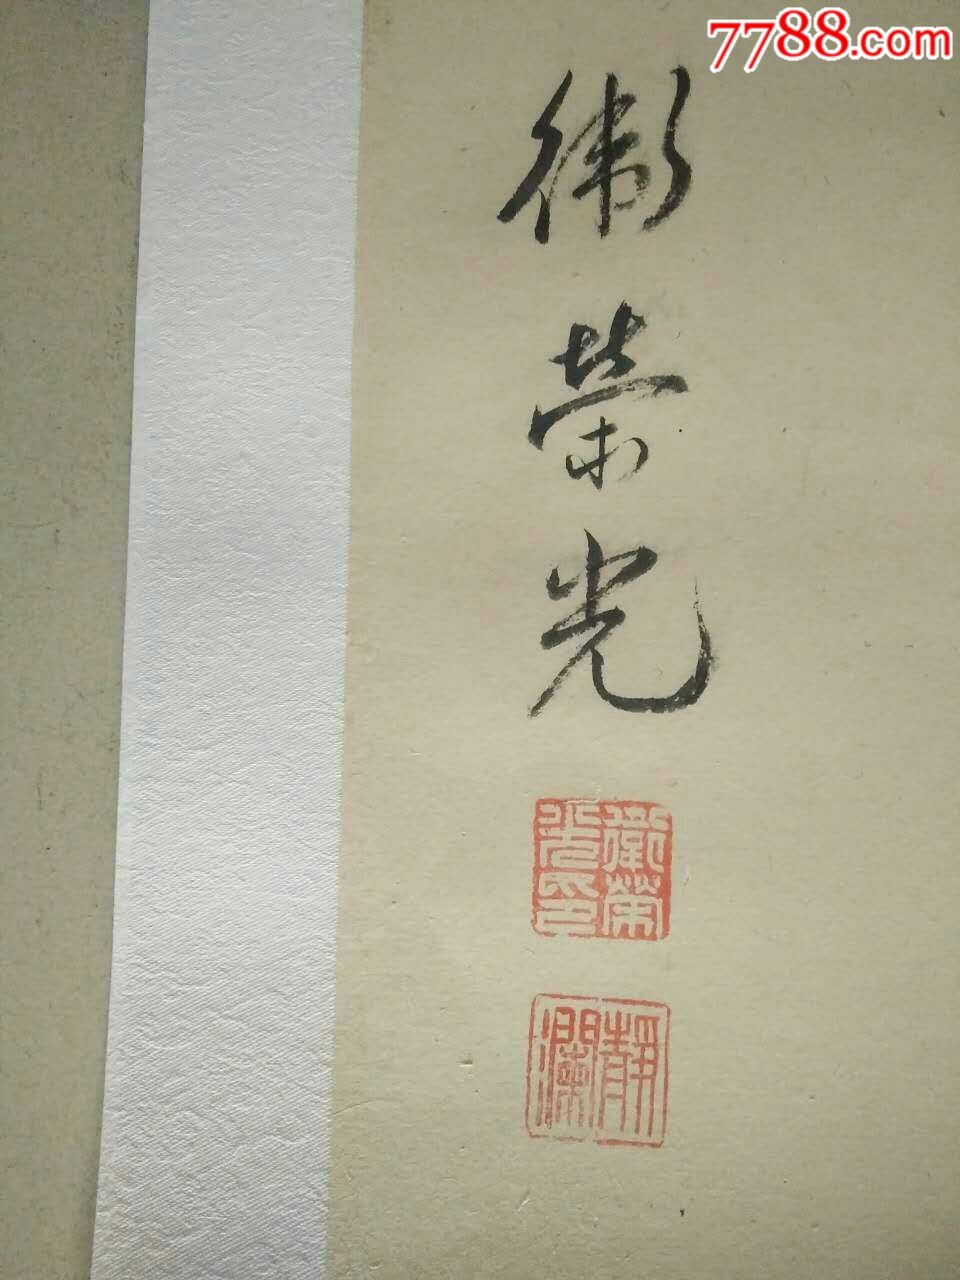 7788.com
衛榮光
衛榮光印
靜瀾